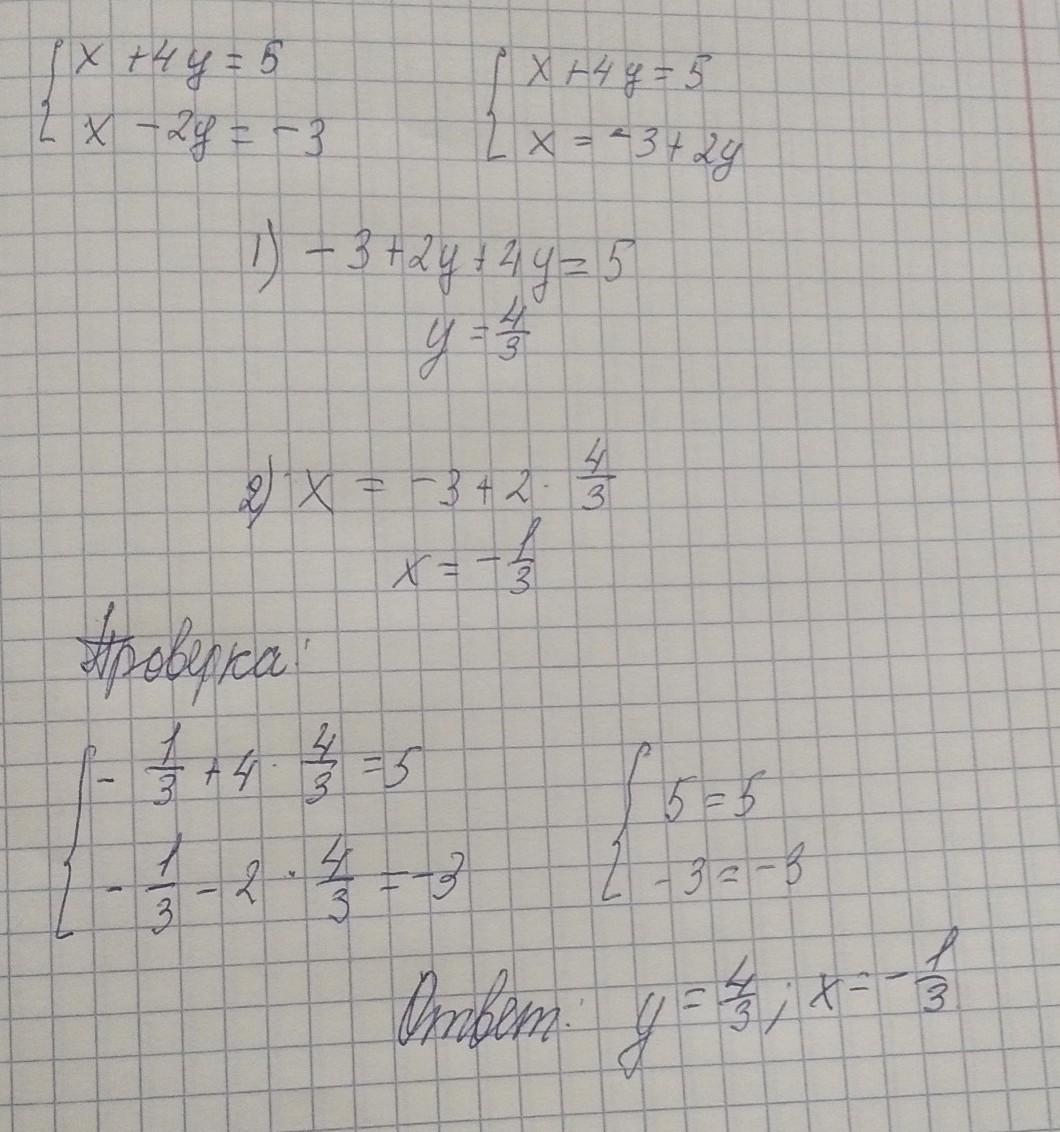 { x + 4y = 5
x - 2y = -3
{ x + 4y = 5
x = -3 + 2y
1) -3 + 2y + 4y = 5
y = 4/3
2) x = -3 + 2 · 4/3
x = -1/3
Проверка:
{ -1/3 + 4 · 4/3 = 5
-1/3 - 2 · 4/3 = -3
{ 5 = 5
-3 = -3
Ответ: y = 4/3; x = -1/3